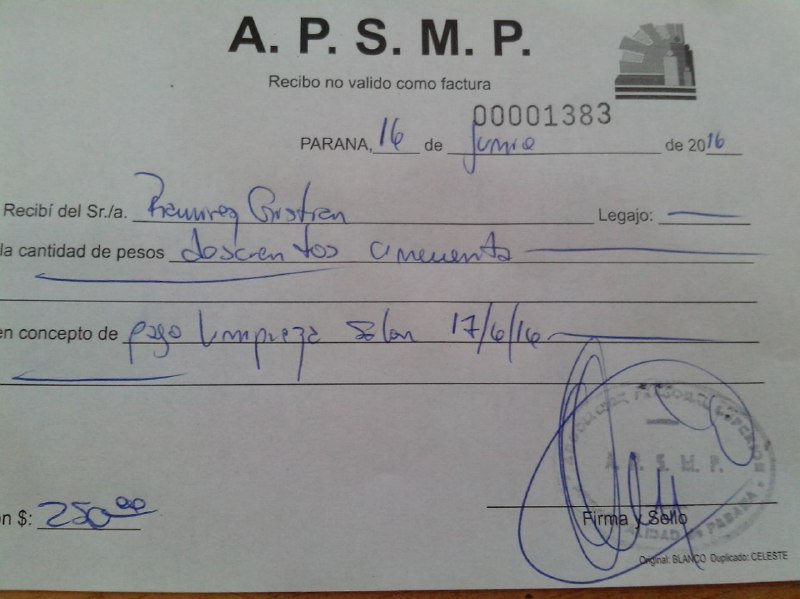 A. P. S. M. P.
Recibo no valido como factura
00001383
PARANA, 16 de Junio de 2016
Recibí del Sr./a. Ramirez Cristian Legajo:
la cantidad de pesos doscientos cincuenta
en concepto de pago limpieza Salon 17/6/16
A. P. S. M. P.
n $: 250,00
Firma y Sello
Original: BLANCO Duplicado: CELESTE